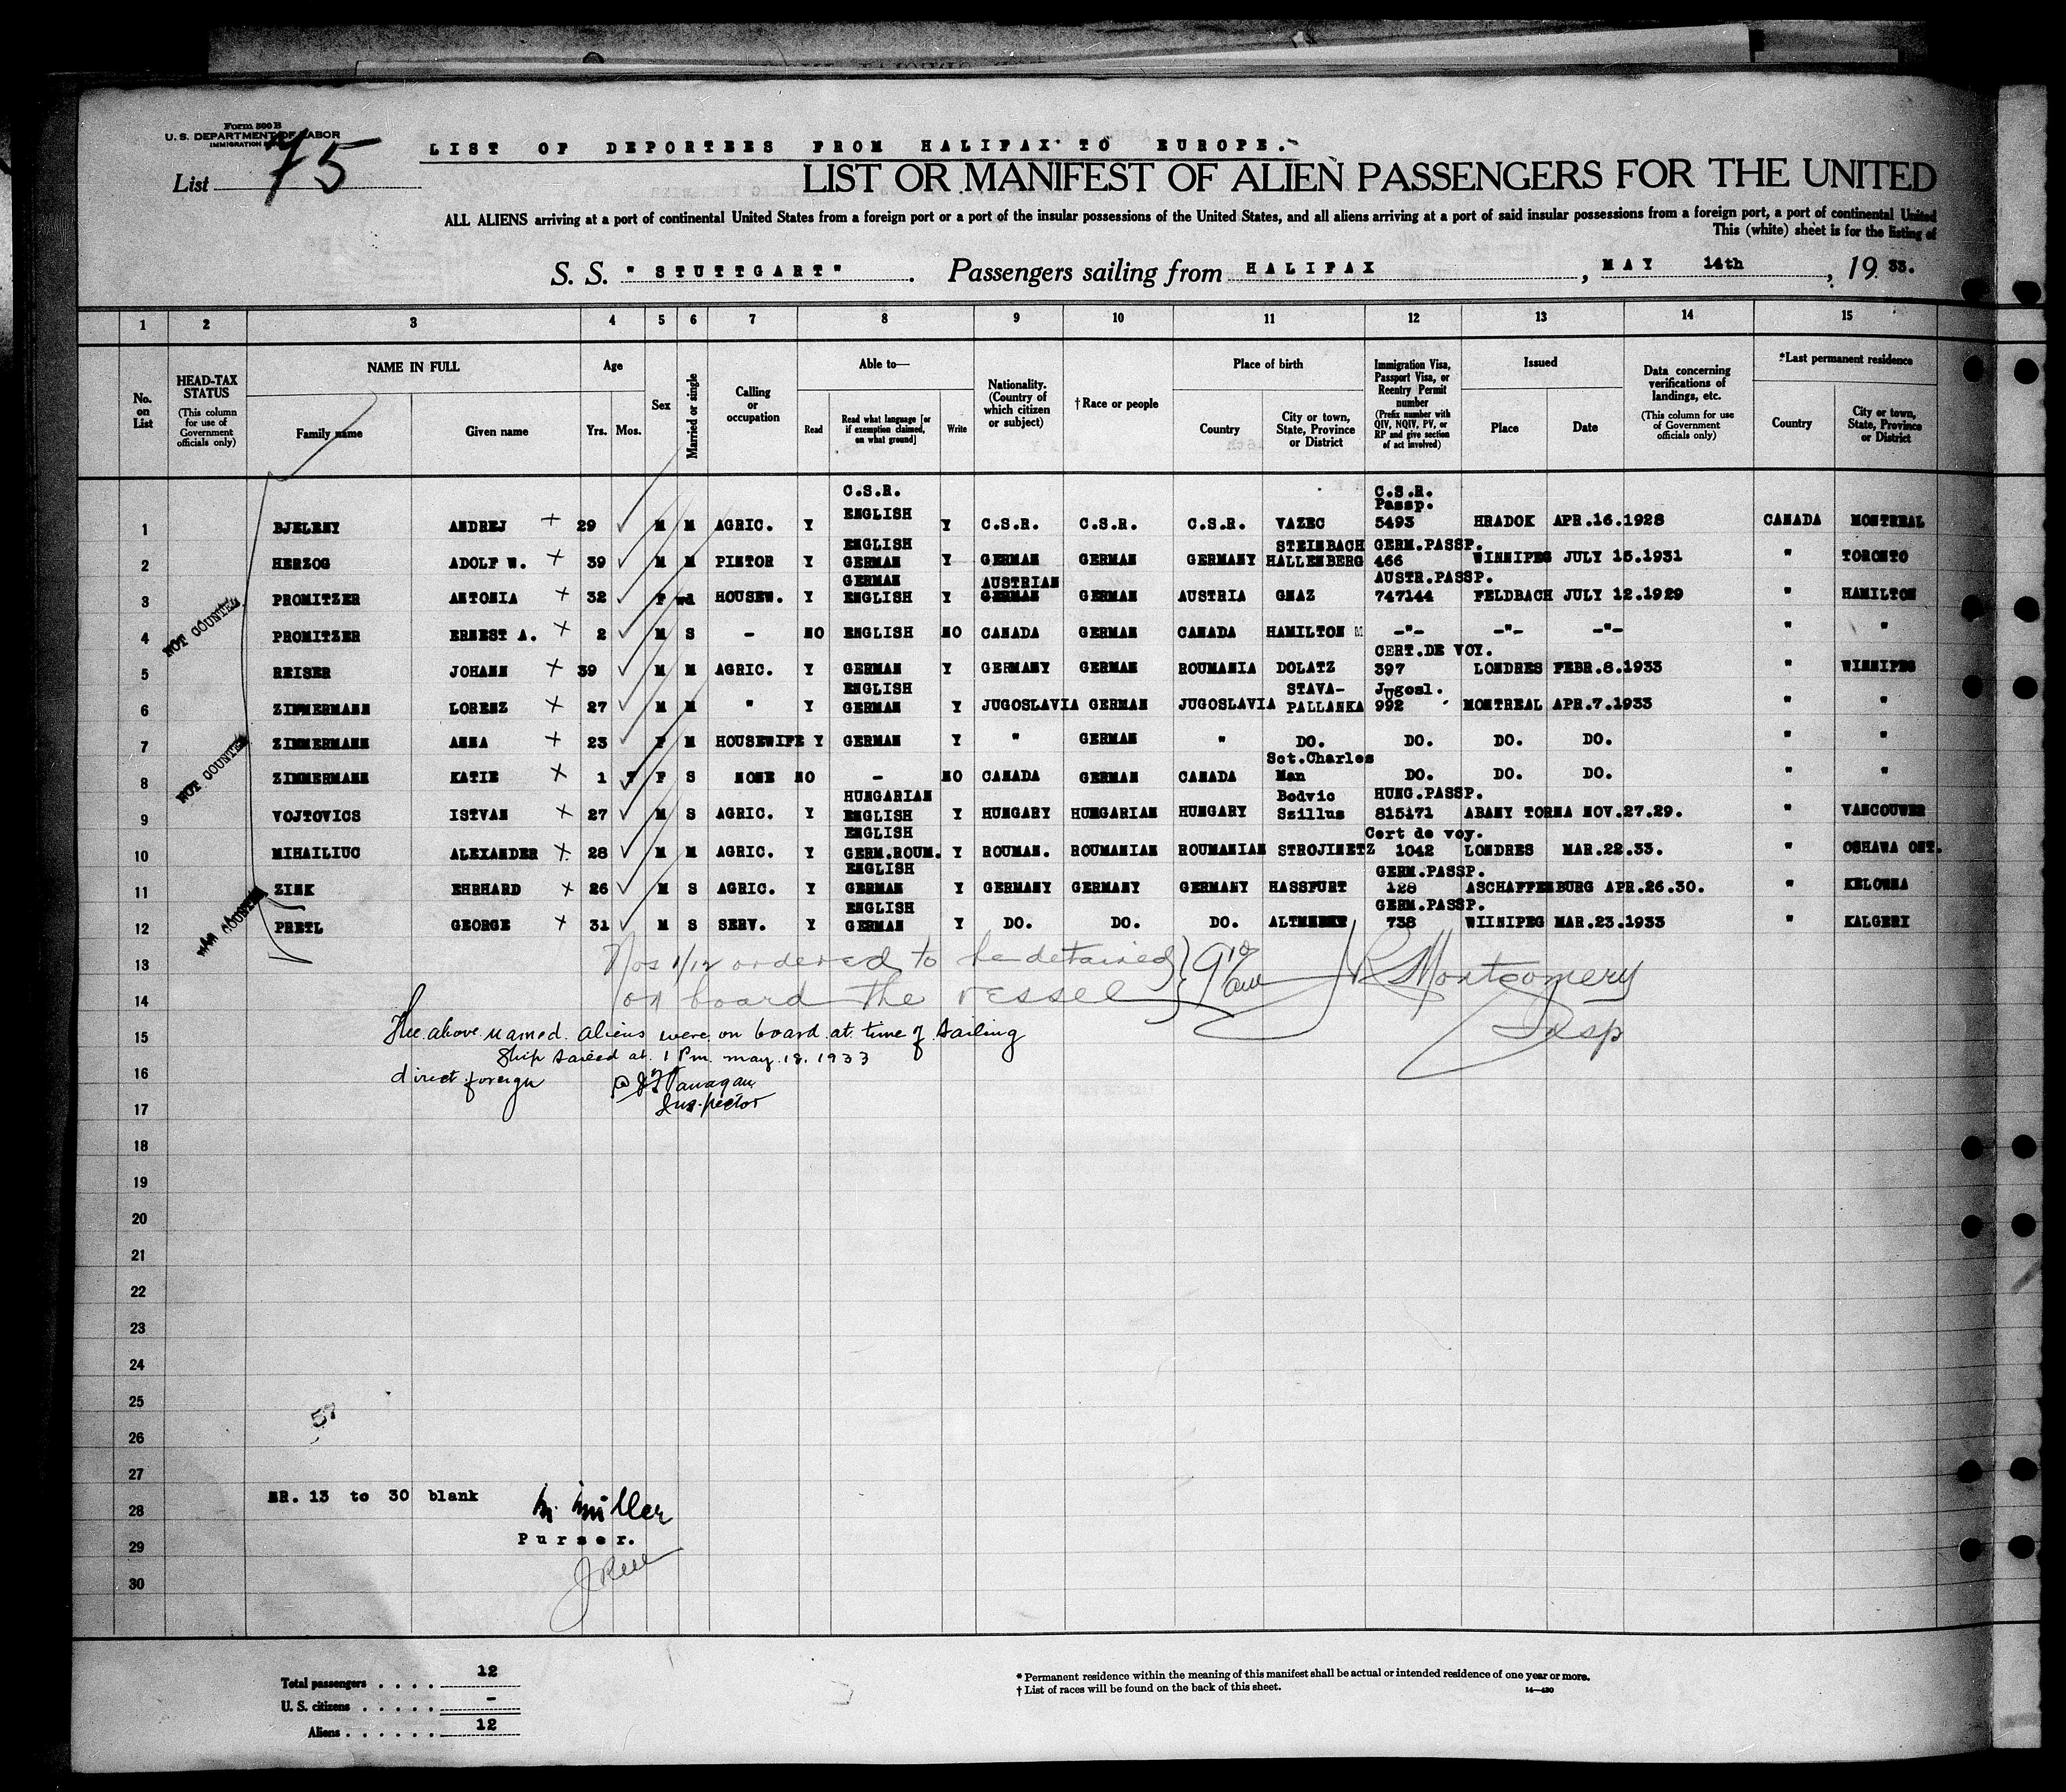 Form 500 B
U. S. DEPARTMENT OF LABOR
IMMIGRATION
List 75
LIST OF DEPORTEES FROM HALIFAX TO EUROPE.
LIST OR MANIFEST OF ALIEN PASSENGERS FOR THE UNITED
ALL ALIENS arriving at a port of continental United States from a foreign port or a port of the insular possessions of the United States, and all aliens arriving at a port of said insular possessions from a foreign port, a port of continental United
This (white) sheet is for the listing of
S. S. "STUTTGART". Passengers sailing from HALIFAX, MAY 14th, 19 33.
1 2 3 4 5 6 7 8 9 10 11 12 13 14 15
No. on List
HEAD-TAX STATUS (This column for use of Government officials only)
NAME IN FULL
Family name Given name
Age
Yrs. Mos.
Sex
Married or single
Calling or occupation
Able to—
Read Read what language [or if exemption claimed, on what ground] Write
Nationality. (Country of which citizen or subject)
† Race or people
Place of birth
Country City or town, State, Province or District
Immigration Visa, Passport Visa, or Reentry Permit number (Prefix number with QIV, NQIV, PV, or RP and give section of act involved)
Issued
Place Date
Data concerning verifications of landings, etc. (This column for use of Government officials only)
*Last permanent residence
Country City or town, State, Province or District
C.S.R. C.S.R.
ENGLISH Passp.
1 BJELENY ANDREJ + 29 M M AGRIC. Y Y C.S.R. C.S.R. C.S.R. VAZEC 5493 HRADOK APR.16.1928 CANADA MONTREAL
ENGLISH STEINBACH GERM.PASSP.
2 HERZOG ADOLF W. + 39 M M PINTOR Y GERMAN Y GERMAN GERMAN GERMANY HALLENBERG 466 WINNIPEG JULY 15.1931 " TORONTO
GERMAN AUSTRIAN AUSTR.PASSP.
3 PROMITZER ANTONIA + 32 F wd HOUSEW. Y ENGLISH Y GERMAN GERMAN AUSTRIA GNAZ 747144 FELDBACH JULY 12.1929 " HAMILTON
4 PROMITZER ERNEST A. + 2 M S - NO ENGLISH NO CANADA GERMAN CANADA HAMILTON -"- -"- -"- " "
CERT.DE VOY.
5 REISER JOHANN + 39 M M AGRIC. Y GERMAN Y GERMANY GERMAN ROUMANIA DOLATZ 397 LONDRES FEBR.8.1933 " WINNIPEG
ENGLISH STAVA- Jugosl.
6 ZIMMERMANN LORENZ + 27 M M " Y GERMAN Y JUGOSLAVIA GERMAN JUGOSLAVIA PALLANKA 992 MONTREAL APR.7.1933 " "
7 ZIMMERMANN ANNA + 23 F M HOUSEWIFE Y GERMAN Y " GERMAN " DO. DO. DO. DO. " "
Sct.Charles
8 ZIMMERMANN KATIE + 1 7 F S NONE NO - NO CANADA GERMAN CANADA Man DO. DO. DO. " "
HUNGARIAN Bodvic HUNG.PASSP.
9 VOJTOVICS ISTVAN + 27 M S AGRIC. Y ENGLISH Y HUNGARY HUNGARIAN HUNGARY Szillus 815171 ABANY TORNA NOV.27.29. " VANCOUVER
ENGLISH Cert de voy.
10 MIHAILIUC ALEXANDER + 28 M M AGRIC. Y GERM.ROUM. Y ROUMAN. ROUMANIAN ROUMANIAN STROJINETZ 1042 LONDRES MAR.22.33. " OSHAWA ONT.
ENGLISH GERM.PASSP.
11 ZINK EHRHARD + 26 M S AGRIC. Y GERMAN Y GERMANY GERMANY GERMANY HASSFURT 128 ASCHAFFENBURG APR.26.30. " KELOWNA
ENGLISH GERM.PASSP.
12 PRETL GEORGE + 31 M S SERV. Y GERMAN Y DO. DO. DO. 738 WIINIPEG MAR.23.1933 " KALGERI
NOT COUNTED
NOT COUNTED
13 Nos 1/12 ordered to be detained 9 10 am JR Montgomery
14 on board the vessel
15 The above named aliens were on board at time of sailing Insp
Ship sailed at 1 Pm. may 18, 1933
16 direct foreign
17 Inspector
18
19
20
21
22
23
24
25
57
26
27
NR. 13 to 30 blank
28 Miller
29 Purser.
30
Total passengers . . . . 12
U. S. citizens . . . . . -
Aliens . . . . . . 12
* Permanent residence within the meaning of this manifest shall be actual or intended residence of one year or more.
† List of races will be found on the back of this sheet. 14—430